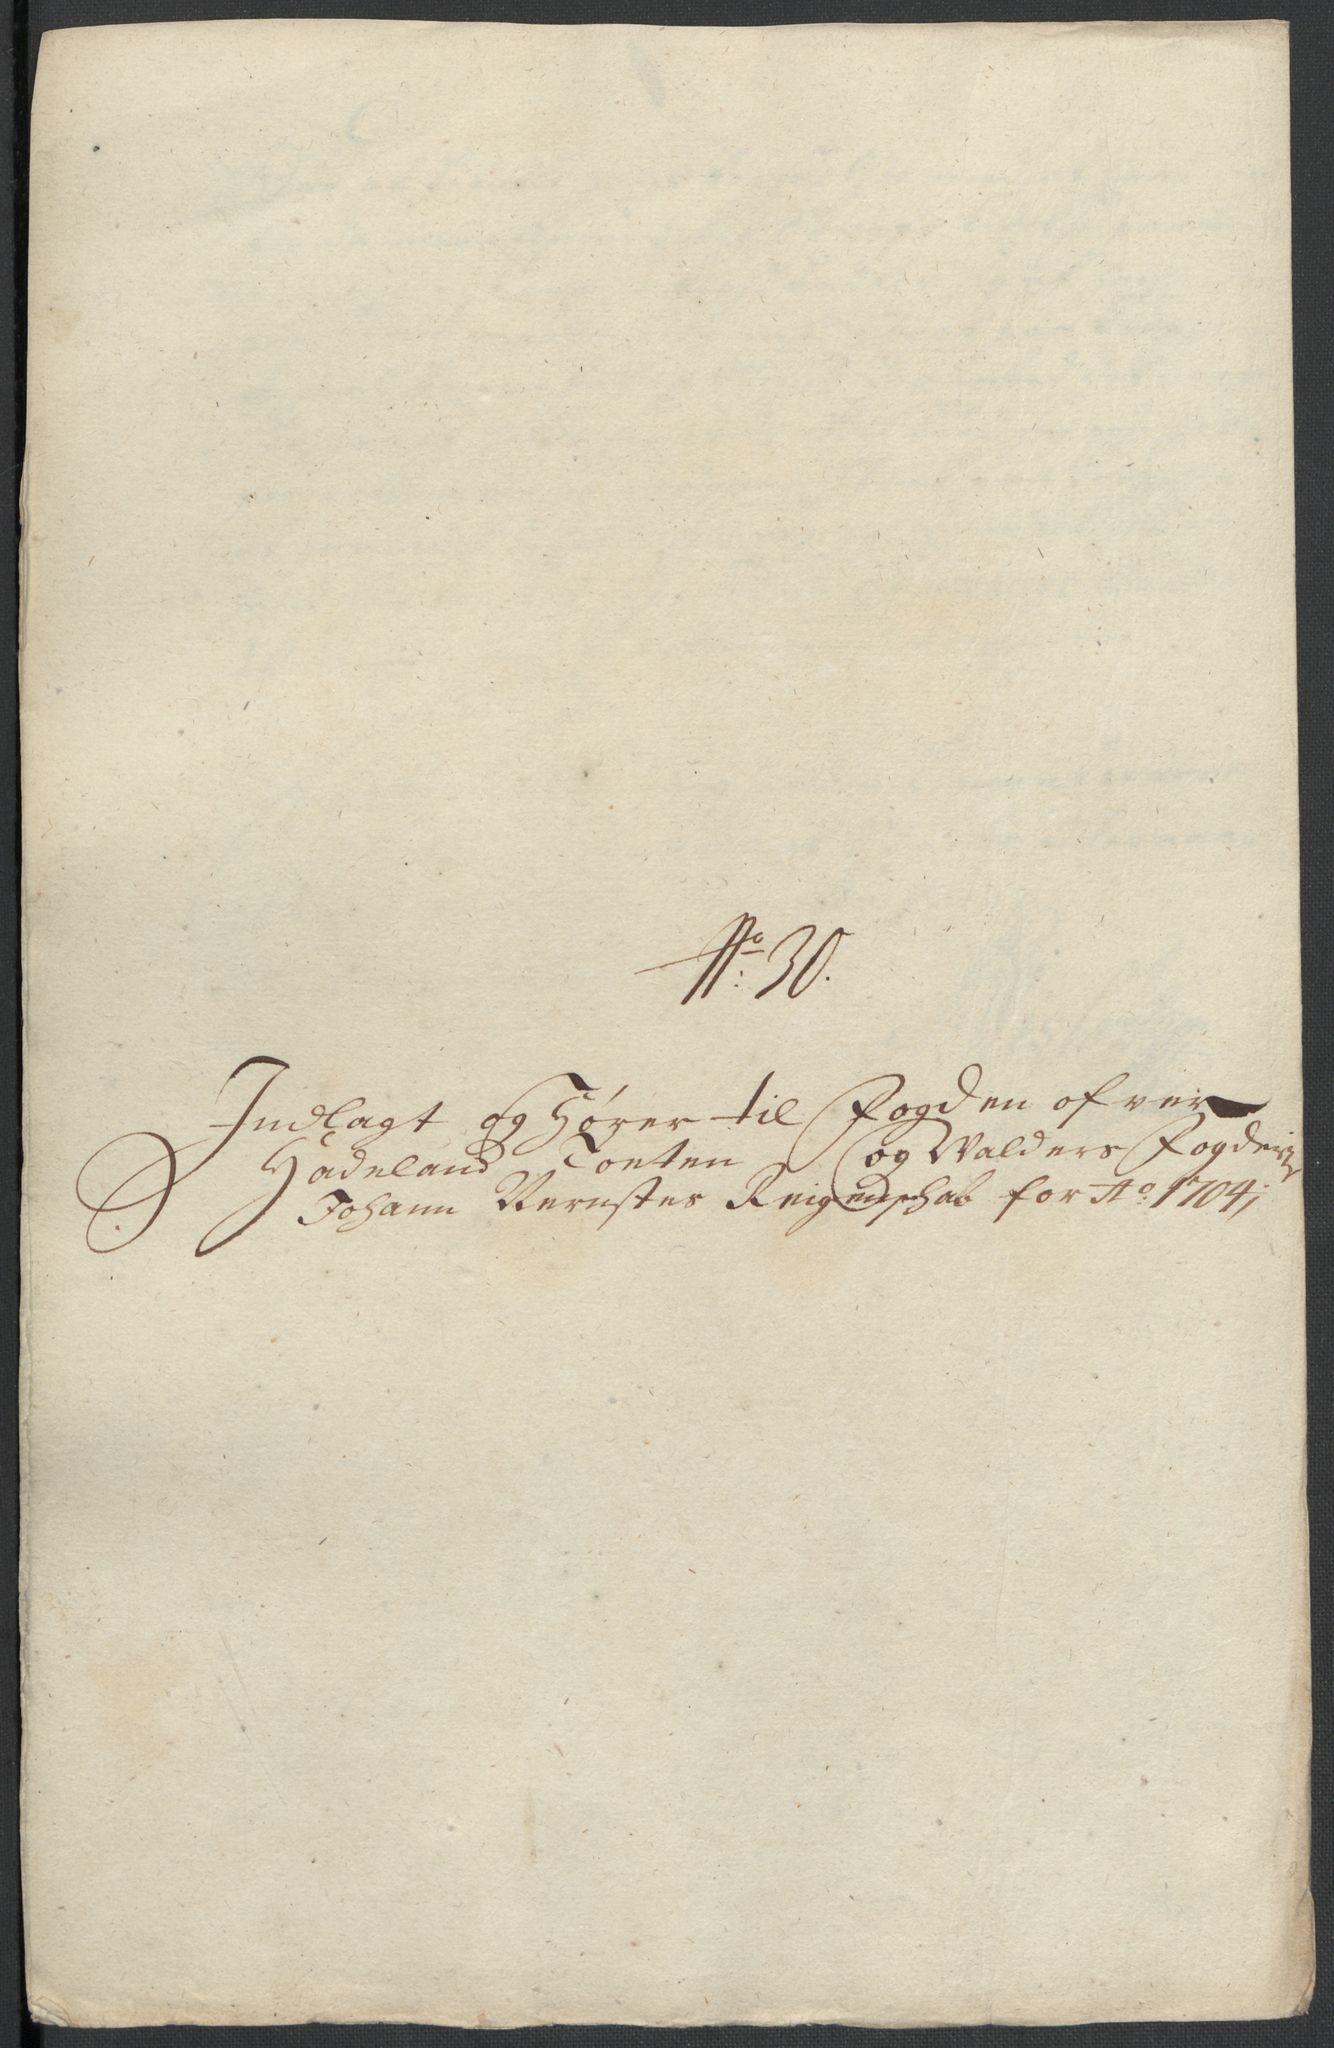 No: 30.
Indlagt og Hører til Fogden ofver
Hadeland Toeten og Walders Fogderie
Johann Vernstes Reigenschab for Ao: 1704;